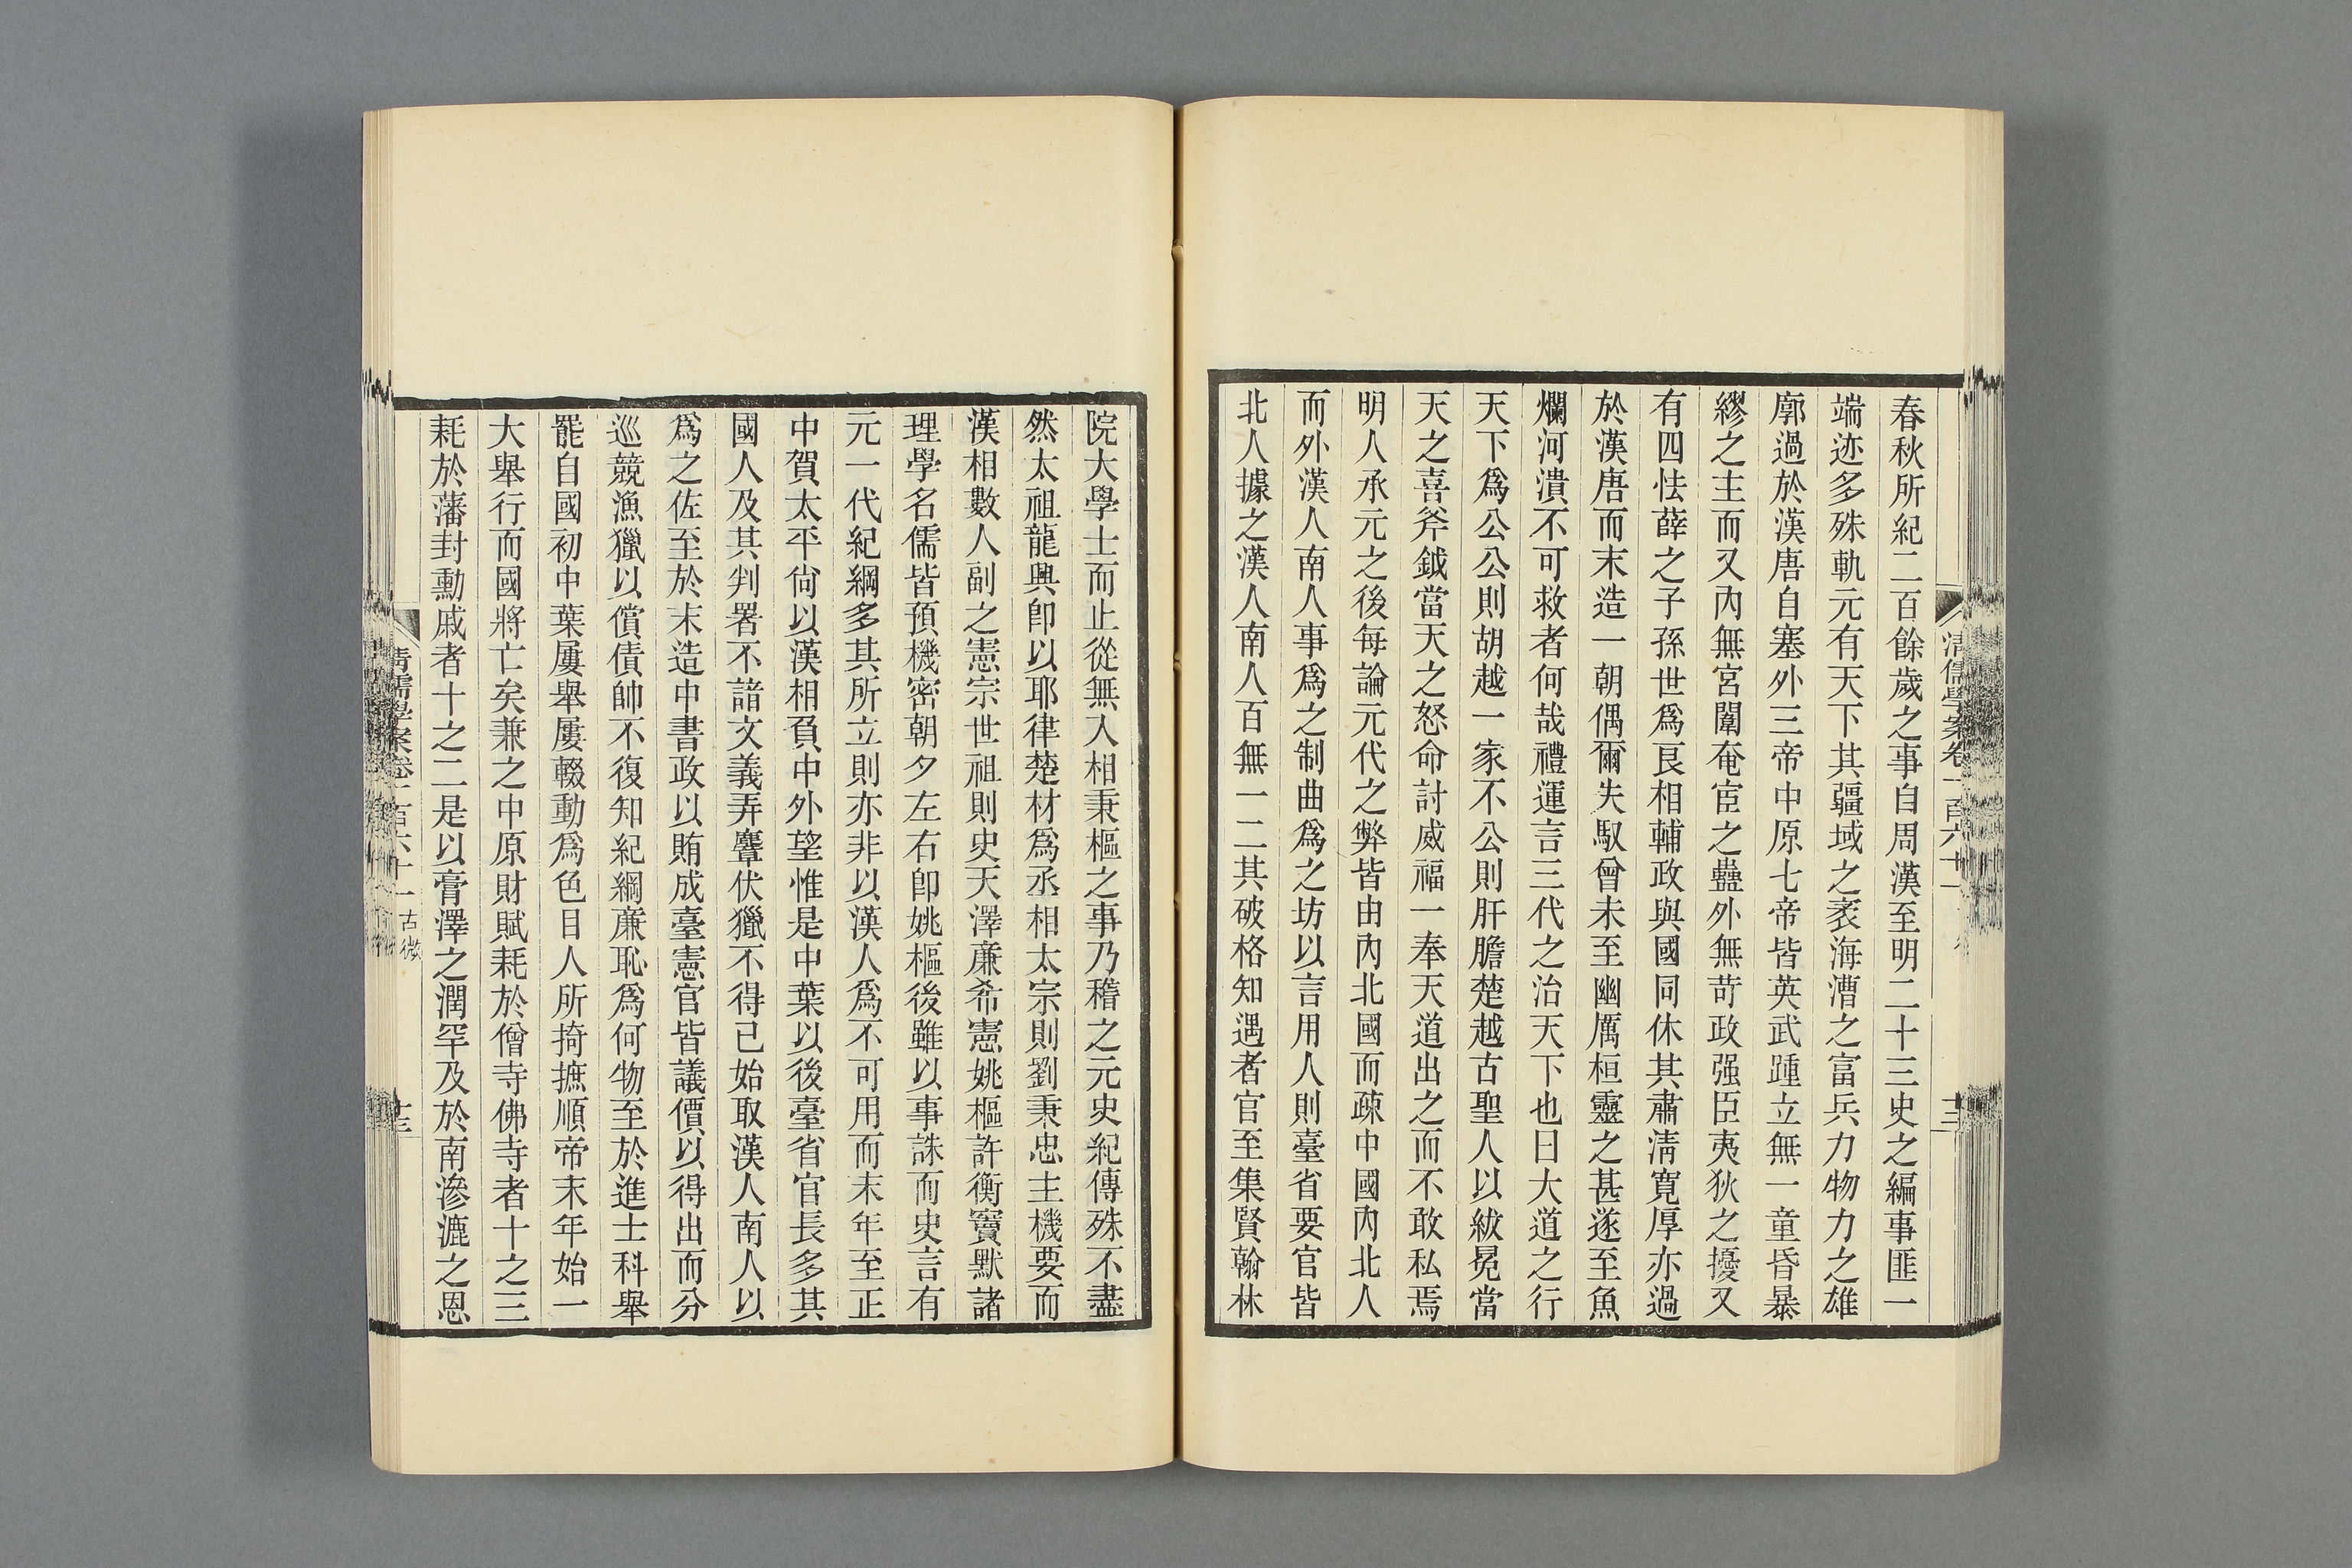 春秋所紀二百餘歲之事自周漢至明二十三史之編事匪一
端迹多殊軌元有天下其疆域之袤海漕之富兵力物力之雄
廓過於漢唐自塞外三帝中原七帝皆英武踵立無一童昏暴
繆之主而又內無宮闈奄宦之蠱外無苛政强臣夷狄之擾又
有四怯薛之子孫世爲良相輔政與國同休其肅淸寛厚亦過
於漢唐而末造一朝偶爾失馭曾未至幽厲桓靈之甚遂至魚
爛河潰不可救者何哉禮運言三代之治天下也曰大道之行
天下爲公公則胡越一家不公則肝膽楚越古聖人以紱冕當
天之喜斧鉞當天之怒命討威福一奉天道出之而不敢私焉
明人承元之後每論元代之弊皆由內北國而疎中國內北人
而外漢人南人事爲之制曲爲之坊以言用人則臺省要官皆
北人據之漢人南人百無一二其破格知遇者官至集賢翰林
院大學士而止從無入相秉樞之事乃稽之元史紀傳殊不盡
然太祖龍興卽以耶律楚材爲丞相太宗則劉秉忠主機要而
漢相數人副之憲宗世祖則史天澤廉希憲姚樞許衡竇默諸
理學名儒皆預機密朝夕左右卽姚樞後雖以事誅而史言有
元一代紀綱多其所立則亦非以漢人爲不可用而末年至正
中賀太平尙以漢相負中外望惟是中葉以後臺省官長多其
國人及其判署不諳文義弄麞伏獵不得已始取漢人南人以
爲之佐至於末造中書政以賄成臺憲官皆議價以得出而分
巡競漁獵以償債帥不復知紀綱廉恥爲何物至於進士科舉
罷自國初中葉屢舉屢輟動爲色目人所掎摭順帝末年始一
大舉行而國將亡矣兼之中原財賦耗於僧寺佛寺者十之三
耗於藩封勳戚者十之二是以膏澤之潤罕及於南滲漉之恩
淸儒學案卷一百六十一 古微
十三